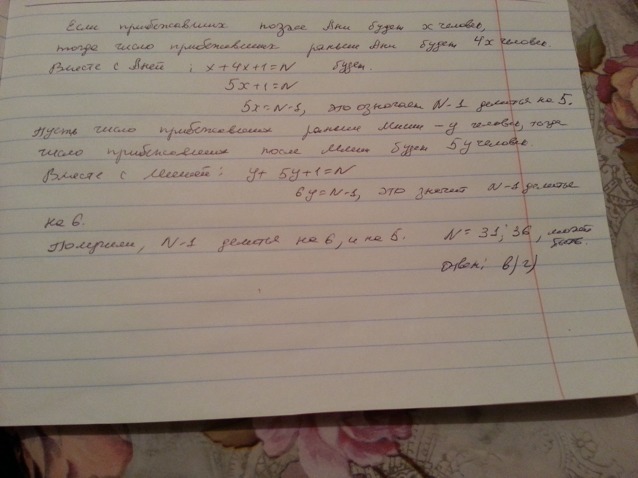 Если прибежавших позже Ани будет x человек,
тогда число прибежавших раньше Ани будет 4x человек.
Вместе с Аней ; x+4x+1=N будет.
5x+1=N
5x=N-1, это означает N-1 делится на 5.
Пусть число прибежавших раньше Миши - y человек, тогда
число прибежавших после Миши будет 5y человек.
Вместе с Мишей: y+ 5y+1=N
6y=N-1, это значит N-1 делится
на 6.
Получили, N-1 делится на 6, и на 5. N= 31; 36, может быть.
Ответ; в) г)